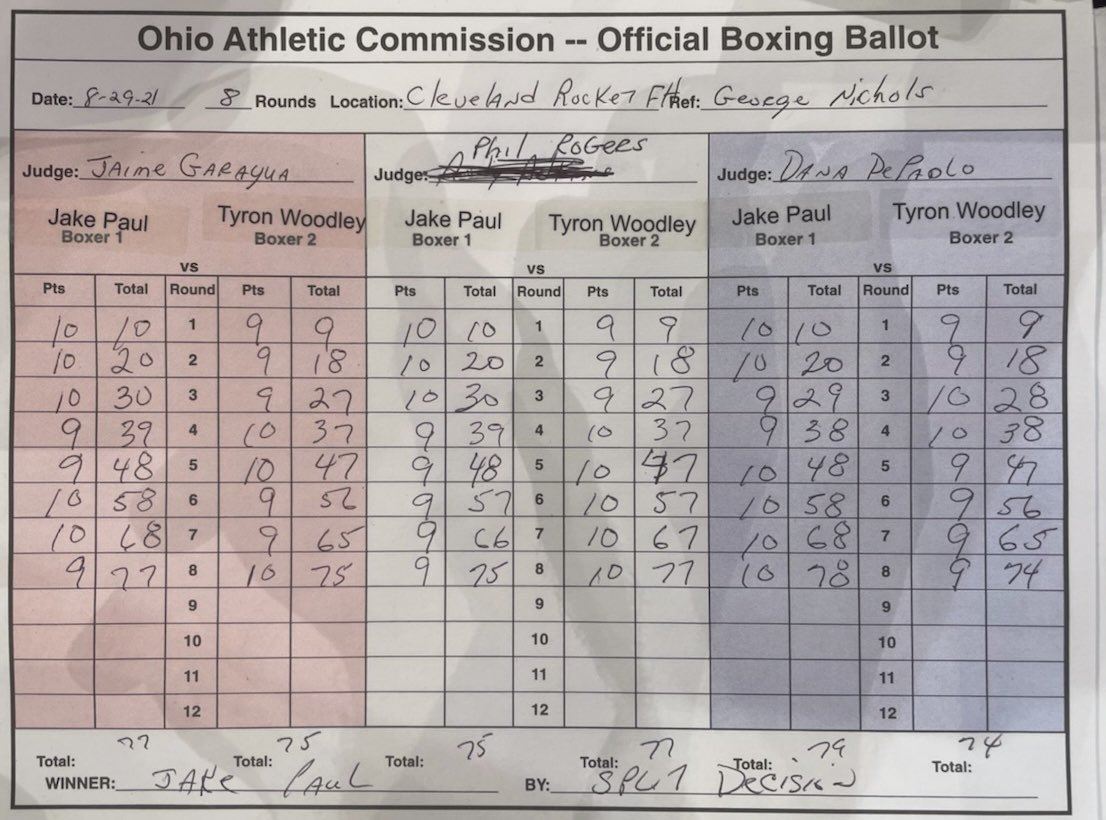 Ohio Athletic Commission -- Official Boxing Ballot
Date: 8-29-21 8 Rounds Location: Cleveland Rocket FH Ref: George Nichols
Judge: JAime GARAYUA Judge: Phil ROGERS Judge: DANA DePAOLO
Jake Paul Tyron Woodley Jake Paul Tyron Woodley Jake Paul Tyron Woodley
Boxer 1 Boxer 2 Boxer 1 Boxer 2 Boxer 1 Boxer 2
vs vs vs
Pts Total Round Pts Total Pts Total Round Pts Total Pts Total Round Pts Total
10 10 1 9 9 10 10 1 9 9 10 10 1 9 9
10 20 2 9 18 10 20 2 9 18 10 20 2 9 18
10 30 3 9 27 10 30 3 9 27 9 29 3 10 28
9 39 4 10 37 9 39 4 10 37 9 38 4 10 38
9 48 5 10 47 9 48 5 10 47 10 48 5 9 47
10 58 6 9 56 9 57 6 10 57 10 58 6 9 56
10 68 7 9 65 9 66 7 10 67 10 68 7 9 65
9 77 8 10 75 9 75 8 10 77 10 78 8 9 74
9 9 9
10 10 10
11 11 11
12 12 12
Total: 77 Total: 75 Total: 75 Total: 77 Total: 79 Total: 74
WINNER: JAKe PAUL BY: SPLIT Decision